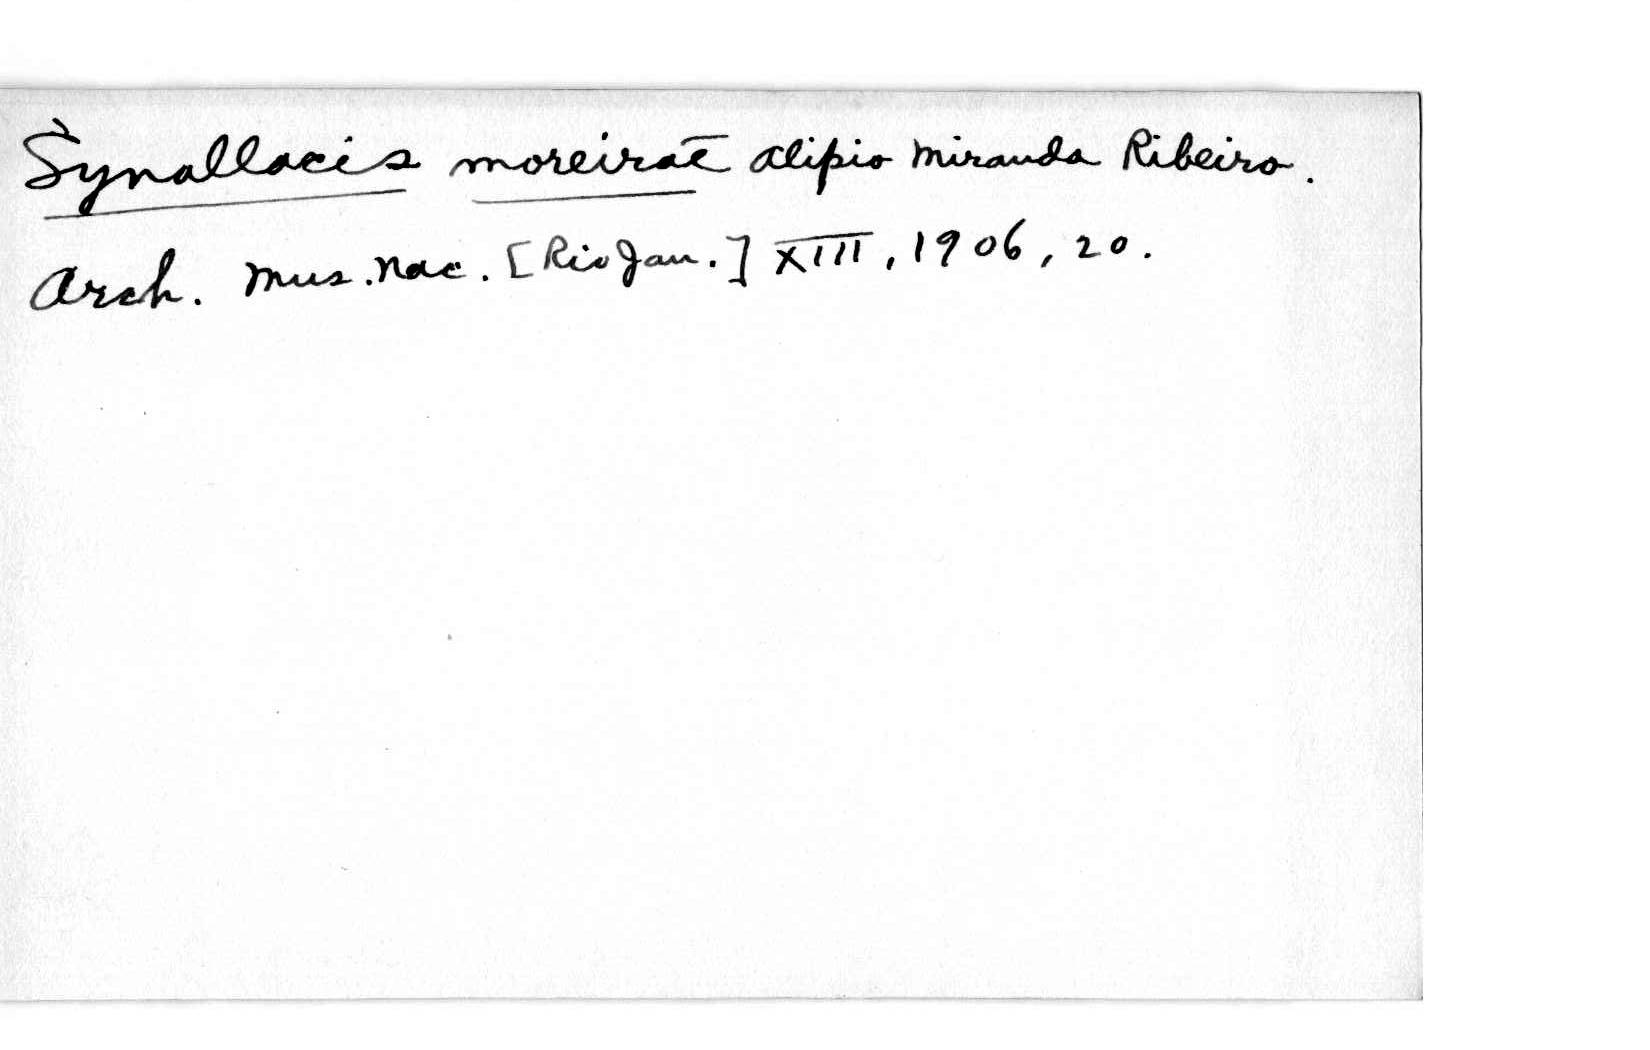 Synallacis moreirae Alipio Miranda Ribeiro.
Arch. Mus. Nac. [Rio Jan.] XIII, 1906, 20.